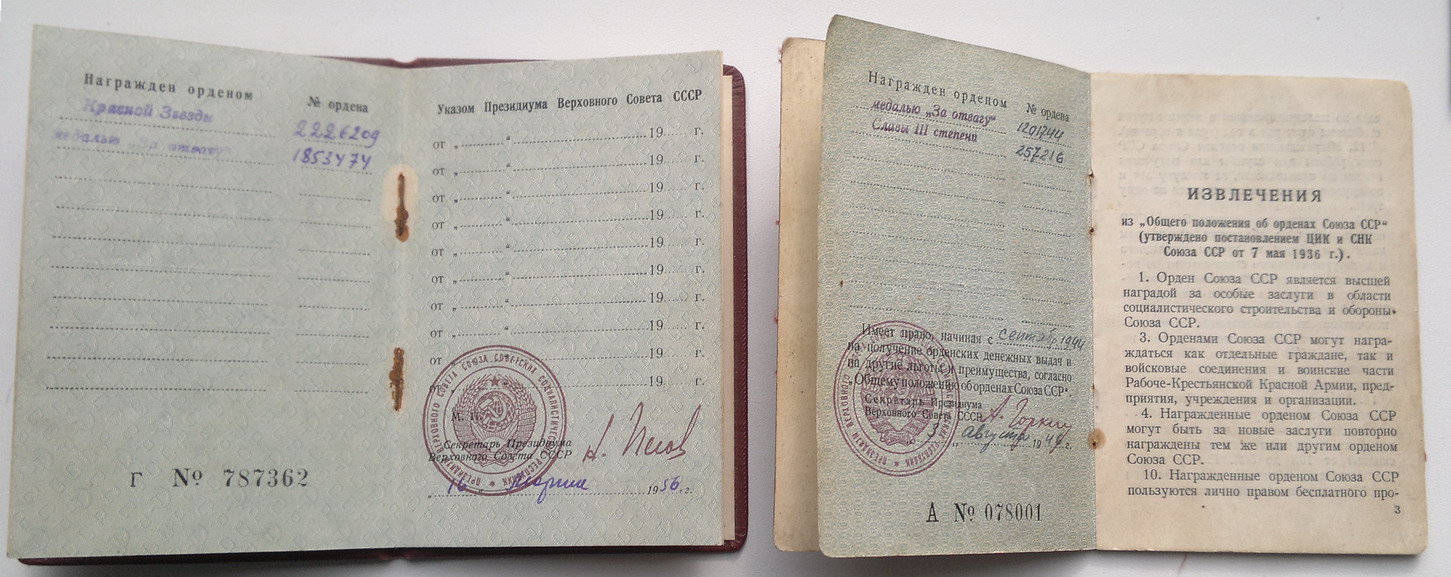 Награжден орденом № ордена
Красной Звезды 2226209
медалью „За отвагу“ 1853474
Г № 787362
Указом Президиума Верховного Совета СССР
от „ “ 19 г.
от „ “ 19 г.
от „ “ 19 г.
от „ “ 19 г.
от „ “ 19 г.
от „ “ 19 г.
от „ “ 19 г.
от „ “ 19 г.
от 19 г.
от 19 г.
М. П.
Секретарь Президиума
Верховного Совета СССР
16 марта 1956 г.
Награжден орденом № ордена
медалью „За отвагу“ 1201744
Славы III степени 257216
Имеет право, начиная с сентябр 1944
на получение орденских денежных выдач и
на другие льготы и преимущества, согласно
"Общему положению об орденах Союза ССР".
Секретарь Президиума
Верховного Совета СССР А. Горкин
3 август 1948 г.
А № 078001
ИЗВЛЕЧЕНИЯ
из „Общего положения об орденах Союза ССР“
(утверждено постановлением ЦИК и СНК
Союза ССР от 7 мая 1936 г.).
1. Орден Союза ССР является высшей
наградой за особые заслуги в области
социалистического строительства и обороны
Союза ССР.
3. Орденами Союза ССР могут награ-
ждаться как отдельные граждане, так и
войсковые соединения и воинские части
Рабоче-Крестьянской Красной Армии, пред-
приятия, учреждения и организации.
4. Награжденные орденом Союза ССР
могут быть за новые заслуги повторно
награждены тем же или другим орденом
Союза ССР.
10. Награжденные орденом Союза ССР
пользуются лично правом бесплатного про-
3